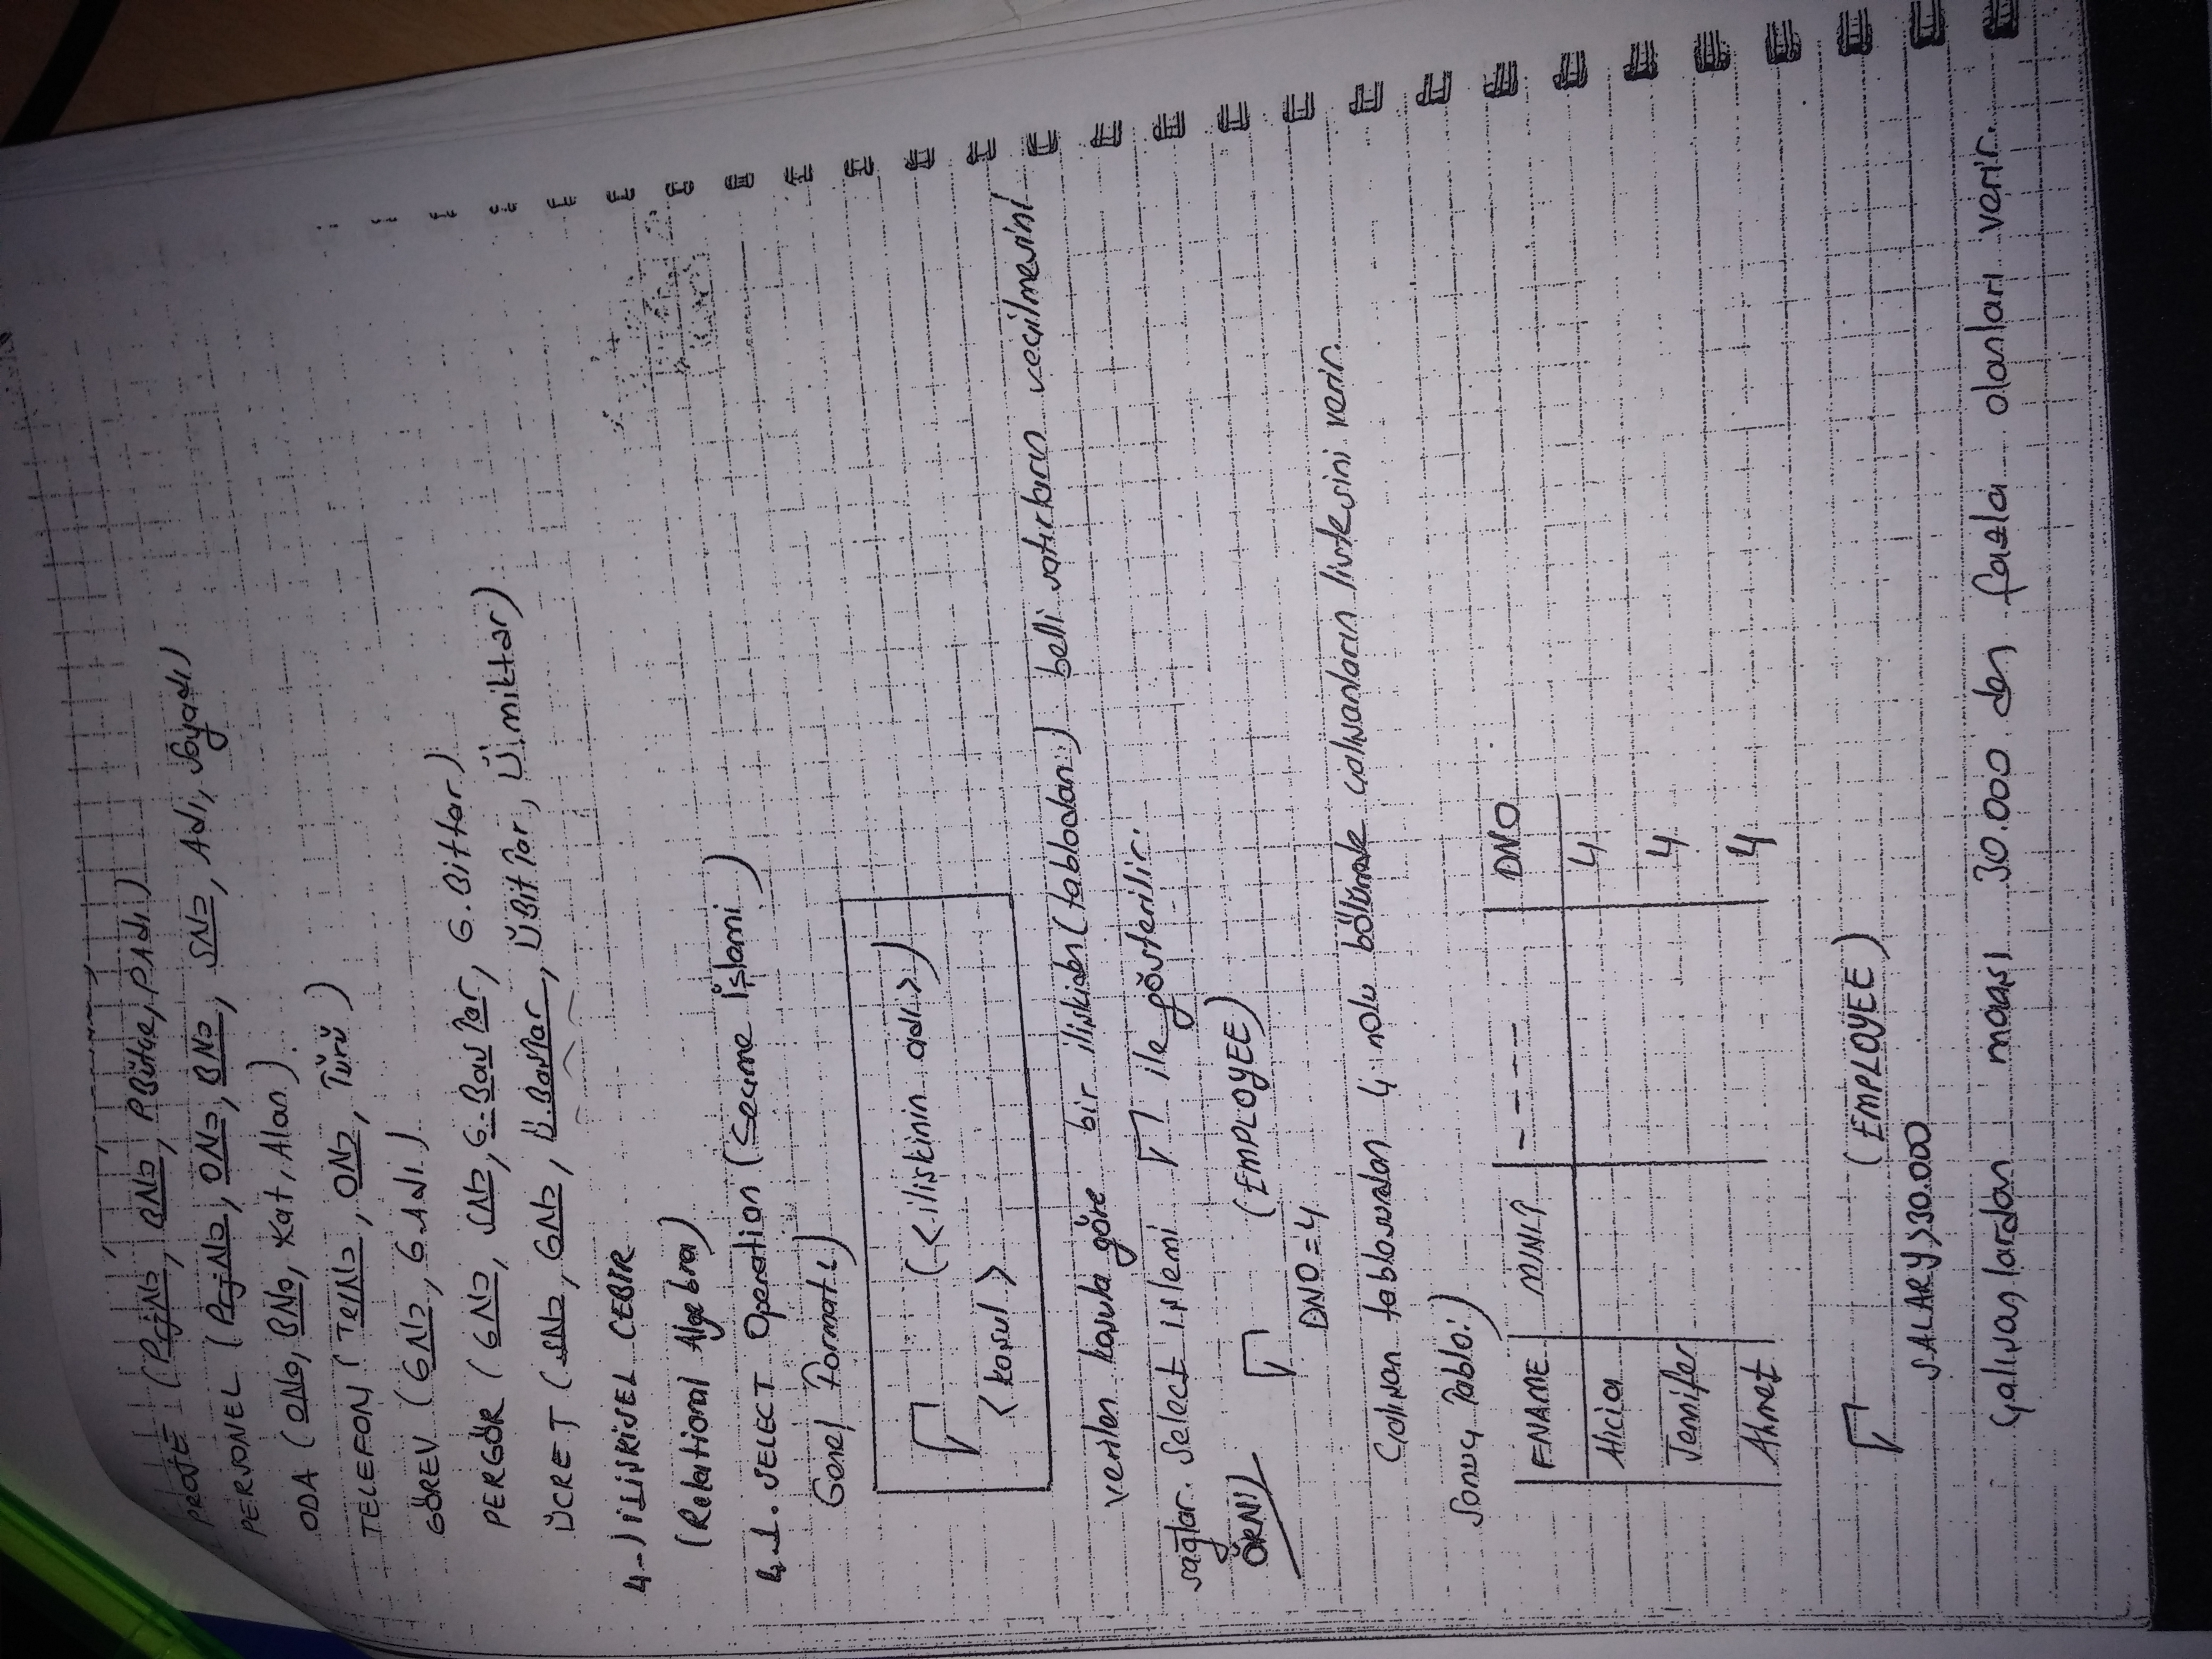 PROJE (PrjNo, BNo, PBütçe, PAdı)
PERSONEL (PrjNo, ONo, BNo, SNo, Adı, Soyadı)
ODA (ONo, BNo, Kat, Alan).
TELEFON (TelNo, ONo, Türü)
GÖREV (GNo, GAdı).
PERGÖR (GNo, SNo, G.BasTar, G.Bittar)
ÜCRET (SNo, GNo, Ü.BasTar, ÜBitTar, Ü.miktar)
4-) İLİŞKİSEL CEBİR
(Relational Algebra)
4.1. SELECT Operation (Seçme İşlemi)
Genel Formatı:)
σ (<ilişkinin adı>)
<koşul>
Verilen koşula göre bir ilişkiden (tablodan:) belli satırların seçilmesini
sağlar. Select işlemi σ ile gösterilir.
ÖRN1) σ (EMPLOYEE)
DNO=4
Çalışan tablosundan 4 nolu bölümde çalışanların listesini verir.
Sonuç Tablo:)
FNAME MINIT ---- DNO
Alicia 4
Jennifer 4
Ahmet 4
σ (EMPLOYEE)
SALARY>30.000
Çalışanlardan maaşı 30.000 den fazla olanları verir.